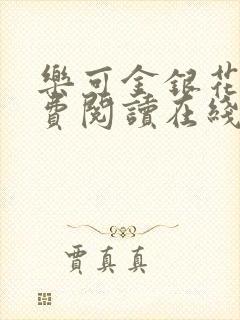 樂可金銀花
費閱讀在綫
賈真真